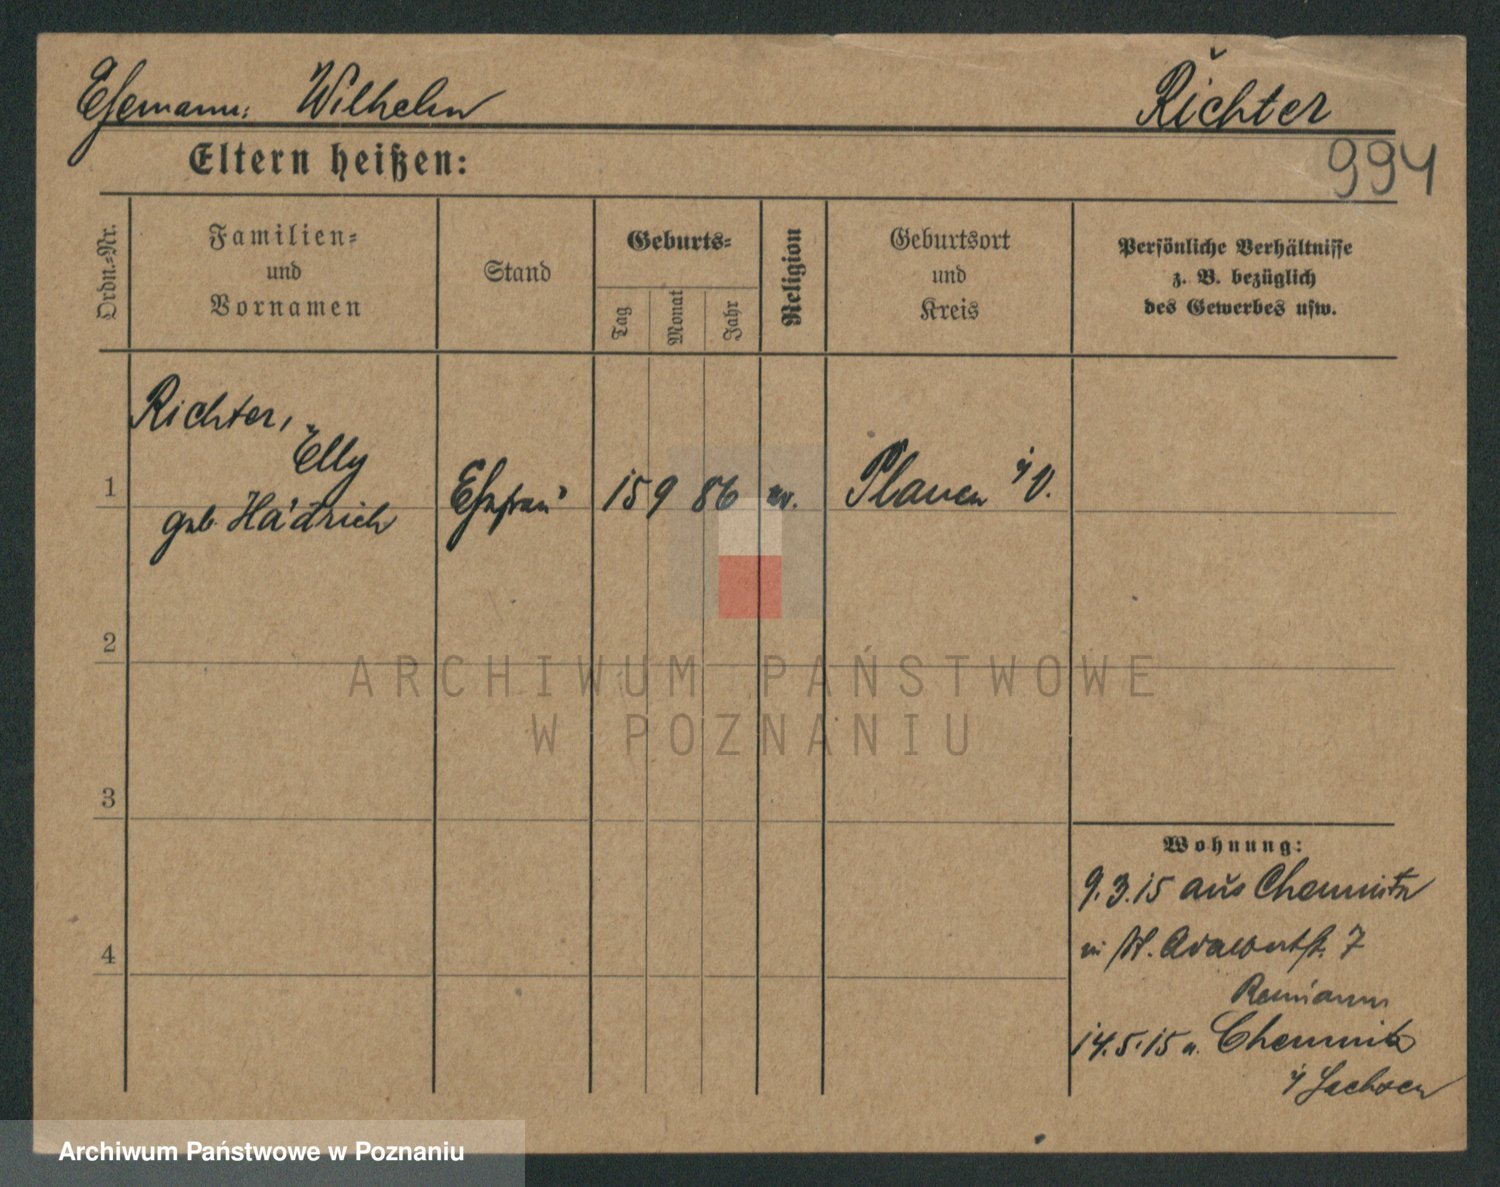 Ehemann: Wilhelm Richter
Eltern heißen: 994
Ordn.-Nr.
Familien-
und
Vornamen
Stand
Geburts-
Tag
Monat
Jahr
Religion
Geburtsort
und
Kreis
Persönliche Verhältnisse
z. B. bezüglich
des Gewerbes usw.
Richter,
Elly
geb. Hädrich
1 Ehefrau 15 9 86 ev. Plauen i/V.
2
3
4
Wohnung:
9.3.15 aus Chemnitz
7
14.5.15 n. Chemnitz
i/Sachsen
ARCHIWUM PAŃSTWOWE
W POZNANIU
Archiwum Państwowe w Poznaniu